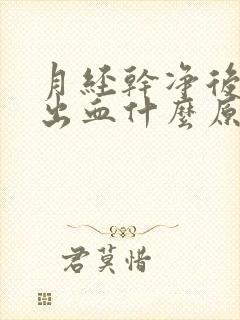 月经幹净後
出血什麼原
君莫惜